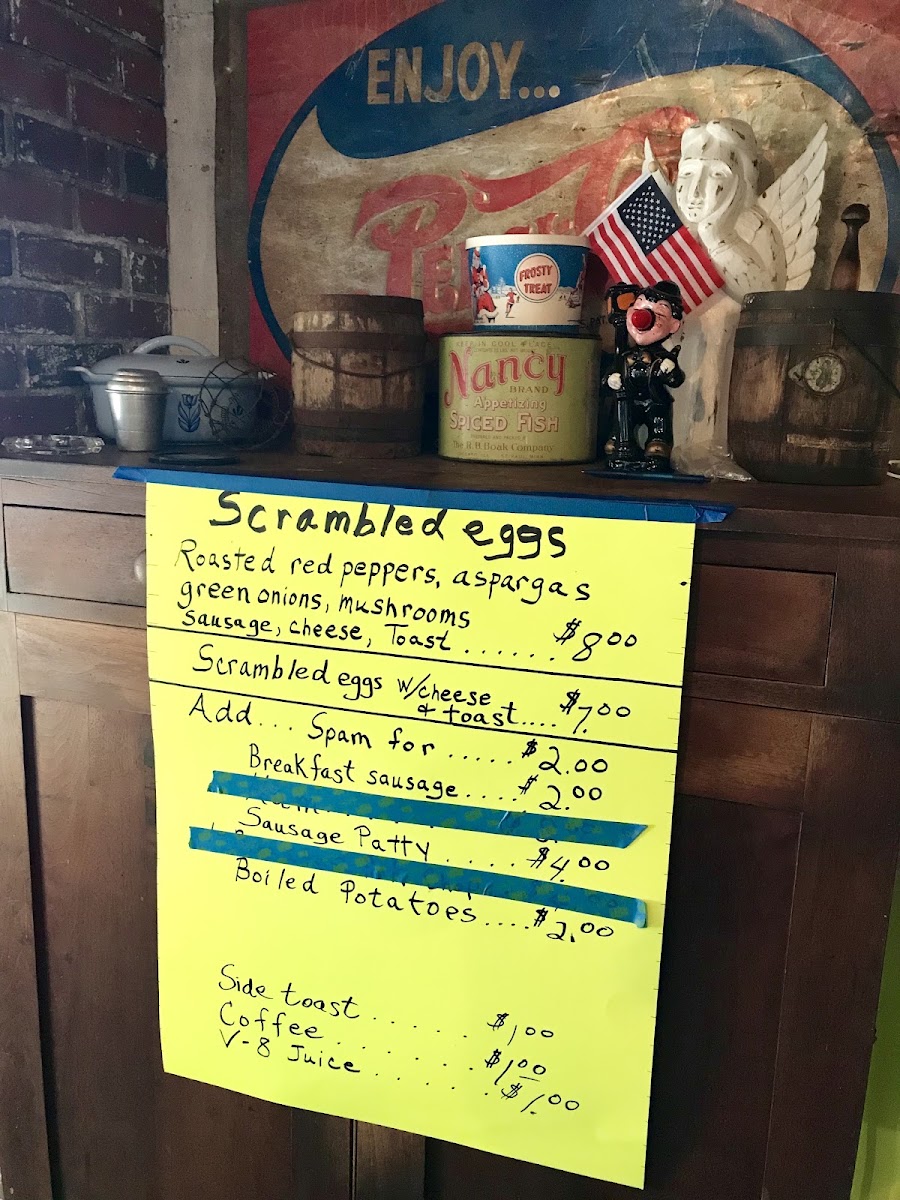 ENJOY...
FROSTY
TREAT
Nancy
BRAND
Appetizing
SPICED FISH
The H.B. Boak Company
Scrambled eggs
Roasted red peppers, aspargas
green onions, mushrooms
sausage, cheese, Toast ...... $8.00
Scrambled eggs w/cheese
& toast.... $7.00
Add... Spam for ..... $2.00
Breakfast sausage.... $2.00
Sausage Patty ..... $4.00
Boiled Potatoes .... $2.00
Side toast ...... $1.00
Coffee ....... $1.00
V-8 Juice ...... $1.00